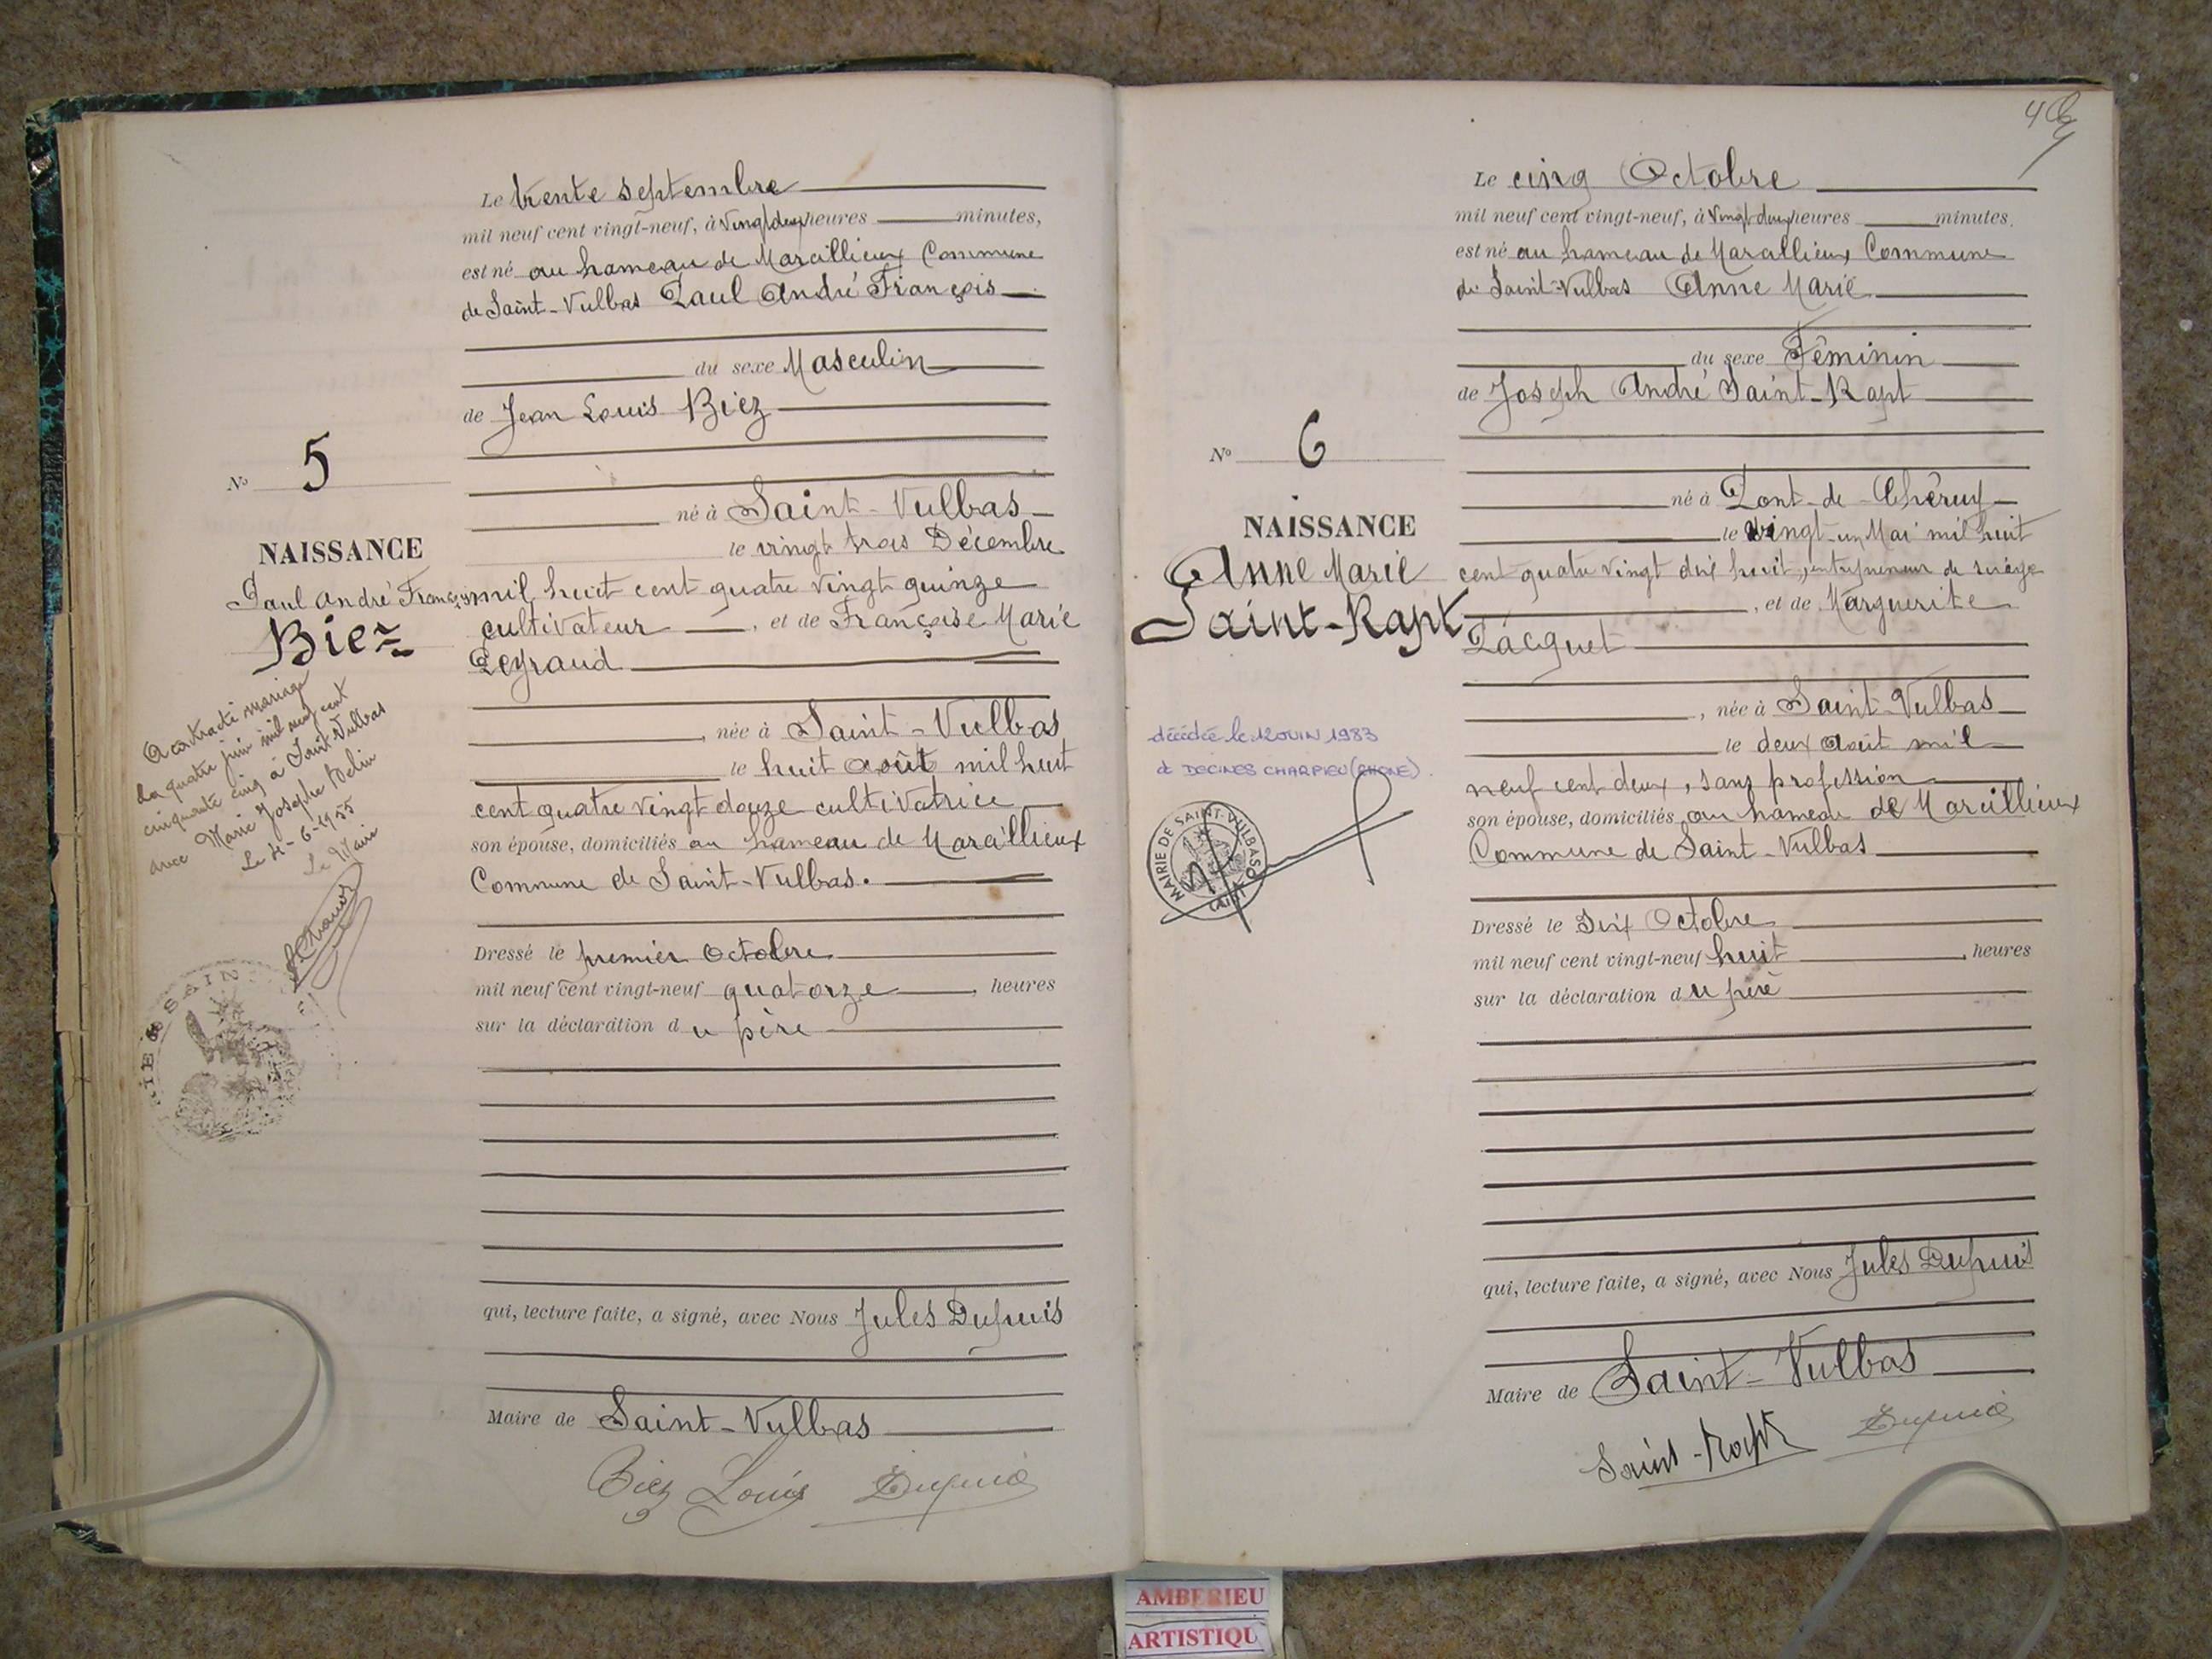 Le trente septembre
mil neuf cent vingt-neuf, à vingt deux heures minutes,
est né au hameau de Marcillieux Commune
de Saint-Vulbas Paul André François
du sexe Masculin
de Jean Louis Biez
né à Saint-Vulbas
le vingt trois Décembre
mil huit cent quatre vingt quinze
cultivateur, et de Françoise Marie
Peyraud
née à Saint-Vulbas
le huit août mil huit
cent quatre vingt douze cultivatrice
son épouse, domiciliés au hameau de Marcillieux
Commune de Saint-Vulbas.
Dressé le premier Octobre
mil neuf cent vingt-neuf quatorze, heures
sur la déclaration du père
qui, lecture faite, a signé, avec Nous Jules Dupuis
Maire de Saint-Vulbas
Biez Louis Dupuis
No 5
NAISSANCE
Paul André François
Biez
A contracté mariage
Le quatre juin mil neuf cent
cinquante cinq à Saint-Vulbas
avec Marie Josephe
Le 4-6-1955
Le Maire
4
Le cinq Octobre
mil neuf cent vingt-neuf, à vingt deux heures minutes.
est né au hameau de Marcillieux Commune
de Saint-Vulbas Anne Marie
du sexe Féminin
de Joseph André Saint-Rapt
né à Pont-de-Chéruy
le vingt-un Mai mil huit
cent quatre vingt dix huit, entrepreneur de
, et de Marguerite
Pacquet
, née à Saint-Vulbas
le deux août mil
neuf cent deux, sans profession
son épouse, domiciliés au hameau de Marcillieux
Commune de Saint-Vulbas
Dressé le Six Octobre
mil neuf cent vingt-neuf huit, heures
sur la déclaration du père
qui, lecture faite, a signé, avec Nous Jules Dupuis
Maire de Saint-Vulbas
Saint-Rapt Dupuis
No 6
NAISSANCE
Anne Marie
Saint-Rapt
décédée le 12 JUIN 1983
à DECINES CHARPIEU (RHONE).
MAIRIE DE SAINT-VULBAS (AIN)
AMBERIEU
ARTISTIQU